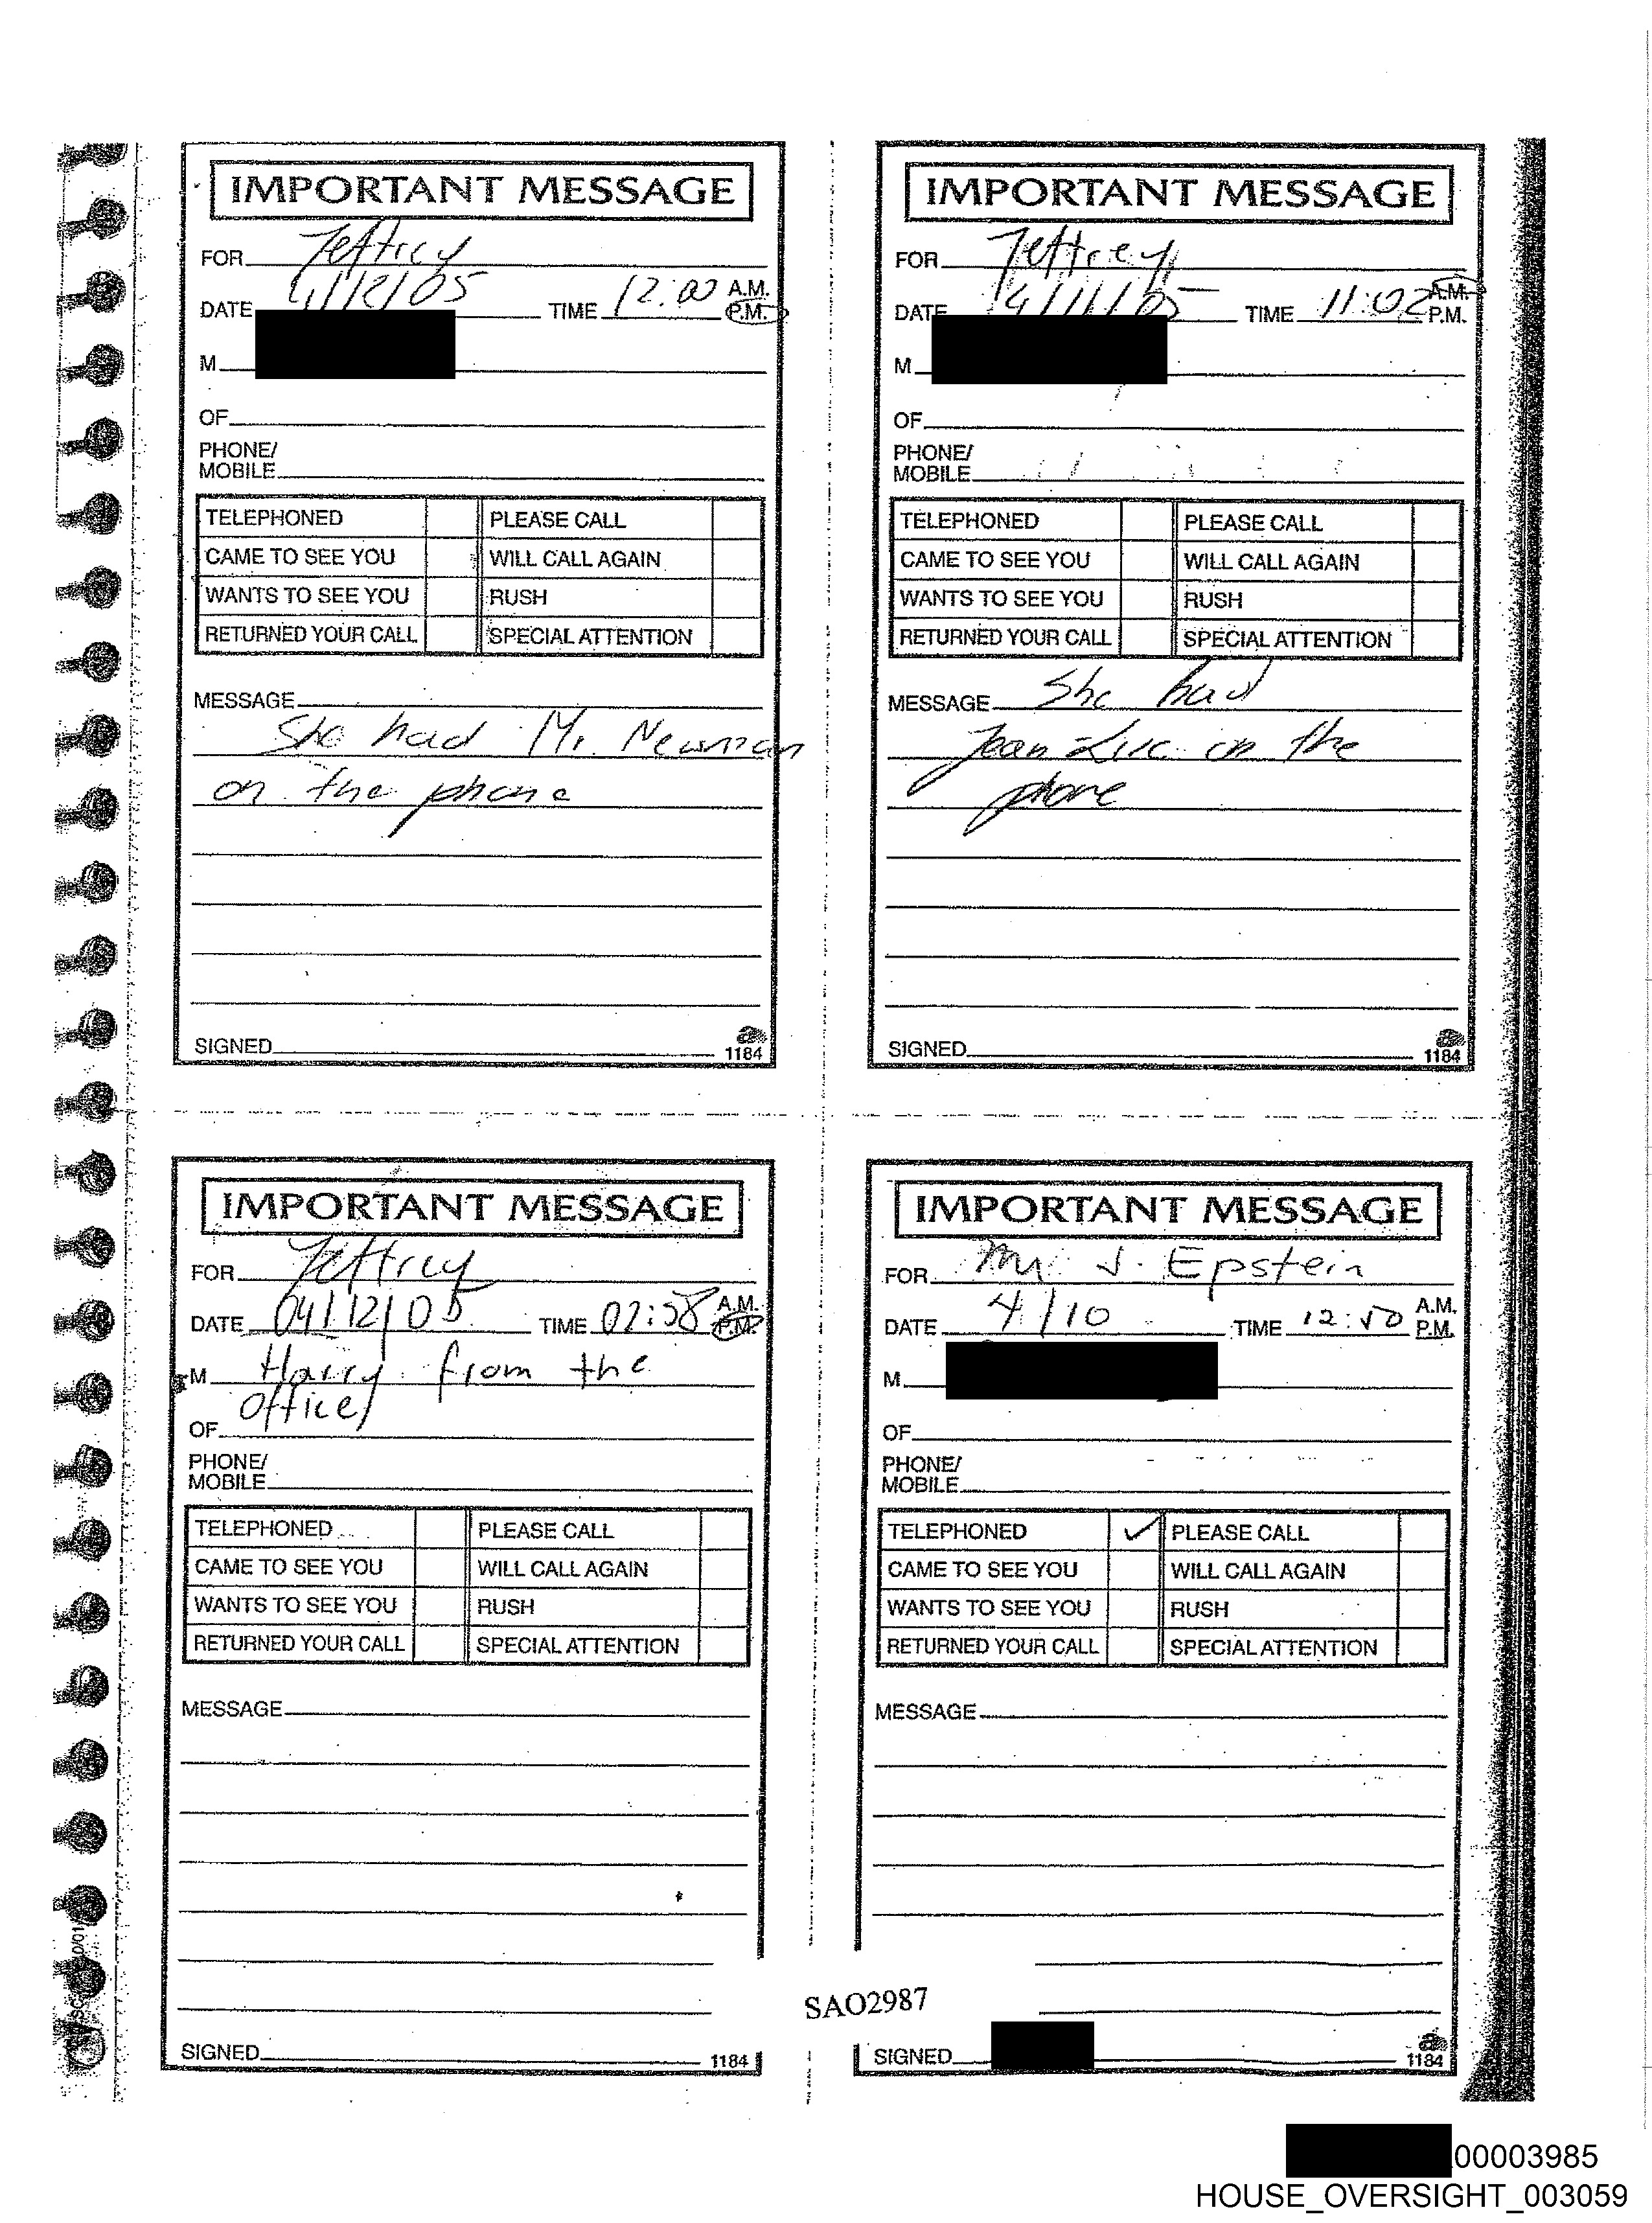 IMPORTANT MESSAGE
FOR Jeffrey
DATE 4/12/05 TIME 12:00 A.M.
P.M.
M
OF
PHONE/
MOBILE
TELEPHONED PLEASE CALL
CAME TO SEE YOU WILL CALL AGAIN
WANTS TO SEE YOU RUSH
RETURNED YOUR CALL SPECIAL ATTENTION
MESSAGE
She had Mr. Newman
on the phone
SIGNED
1184
IMPORTANT MESSAGE
FOR Jeffrey
DATE 4/11/05 TIME 11:02 A.M.
P.M.
M
OF
PHONE/
MOBILE
TELEPHONED PLEASE CALL
CAME TO SEE YOU WILL CALL AGAIN
WANTS TO SEE YOU RUSH
RETURNED YOUR CALL SPECIAL ATTENTION
MESSAGE She had
Jean-Luc on the
phone
SIGNED
1184
IMPORTANT MESSAGE
FOR Jeffrey
DATE 04/12/05 TIME A.M.
P.M.
M Harry from the
office
OF
PHONE/
MOBILE
TELEPHONED PLEASE CALL
CAME TO SEE YOU WILL CALL AGAIN
WANTS TO SEE YOU RUSH
RETURNED YOUR CALL SPECIAL ATTENTION
MESSAGE
SIGNED
1184
IMPORTANT MESSAGE
FOR Mr J. Epstein
DATE 4/10 TIME 12:50 A.M.
P.M.
M
OF
PHONE/
MOBILE
TELEPHONED ✓ PLEASE CALL
CAME TO SEE YOU WILL CALL AGAIN
WANTS TO SEE YOU RUSH
RETURNED YOUR CALL SPECIAL ATTENTION
MESSAGE
SIGNED
1184
SAO2987
00003985
HOUSE_OVERSIGHT_003059